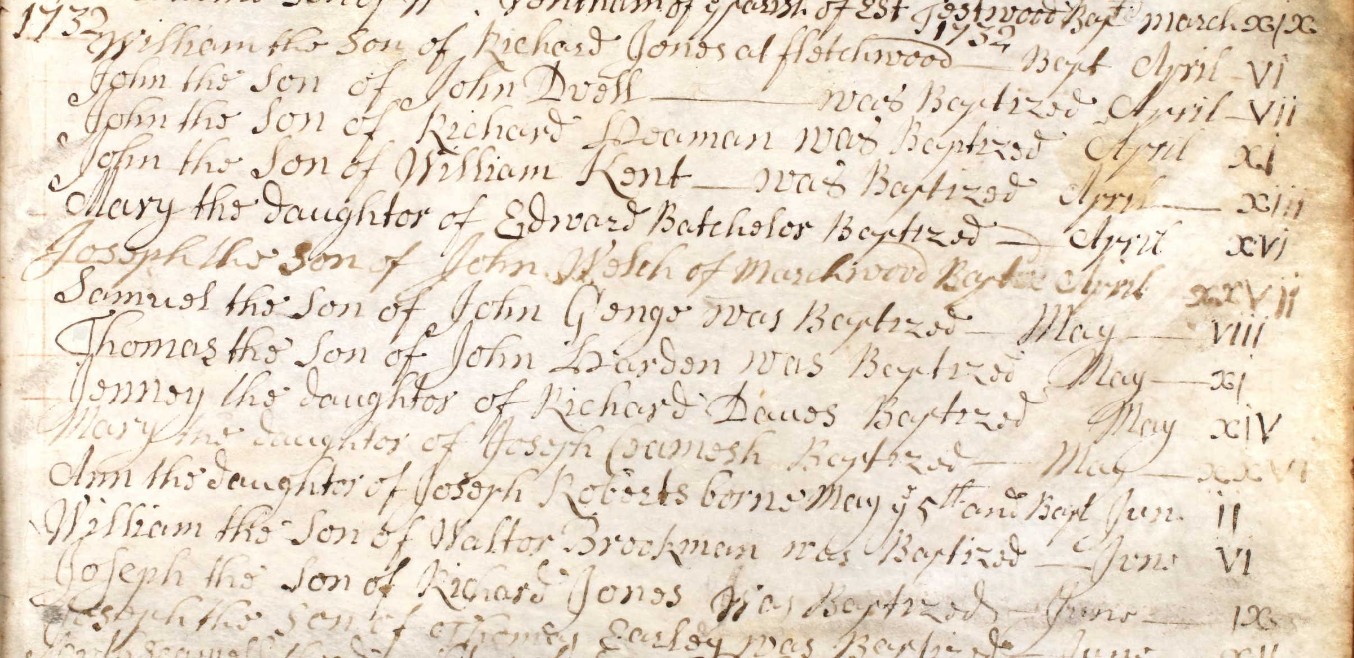 son of Wm. Ventham of ye parish of Est Testwood Bapt march xxix
1732 1732
William the Son of Richard Jones at fletchwood Bapt April VI
John the Son of John Dvell was Baptized April VII
John the Son of Richard Peaman was Baptized April XI
John the Son of William Kent was Baptized April XIII
Mary the daughter of Edward Batchelor Baptized April XVI
Joseph the Son of John Welch of Marchwood Bapt April XXVII
Samuel the Son of John Genge was Baptized May VIII
Thomas the Son of John Harden was Baptized May XI
Jenney the daughter of Richard Daues Baptized May XIV
Mary the daughter of Joseph Baptized May XXVI
Ann the daughter of Joseph Roberts borne May ye 5th and Bapt Jun II
William the Son of Walter Brookman was Baptized June VI
Joseph the Son of Richard Jones Was Baptized June IX
Joseph the Son of Thomas Earley was Baptized June XII